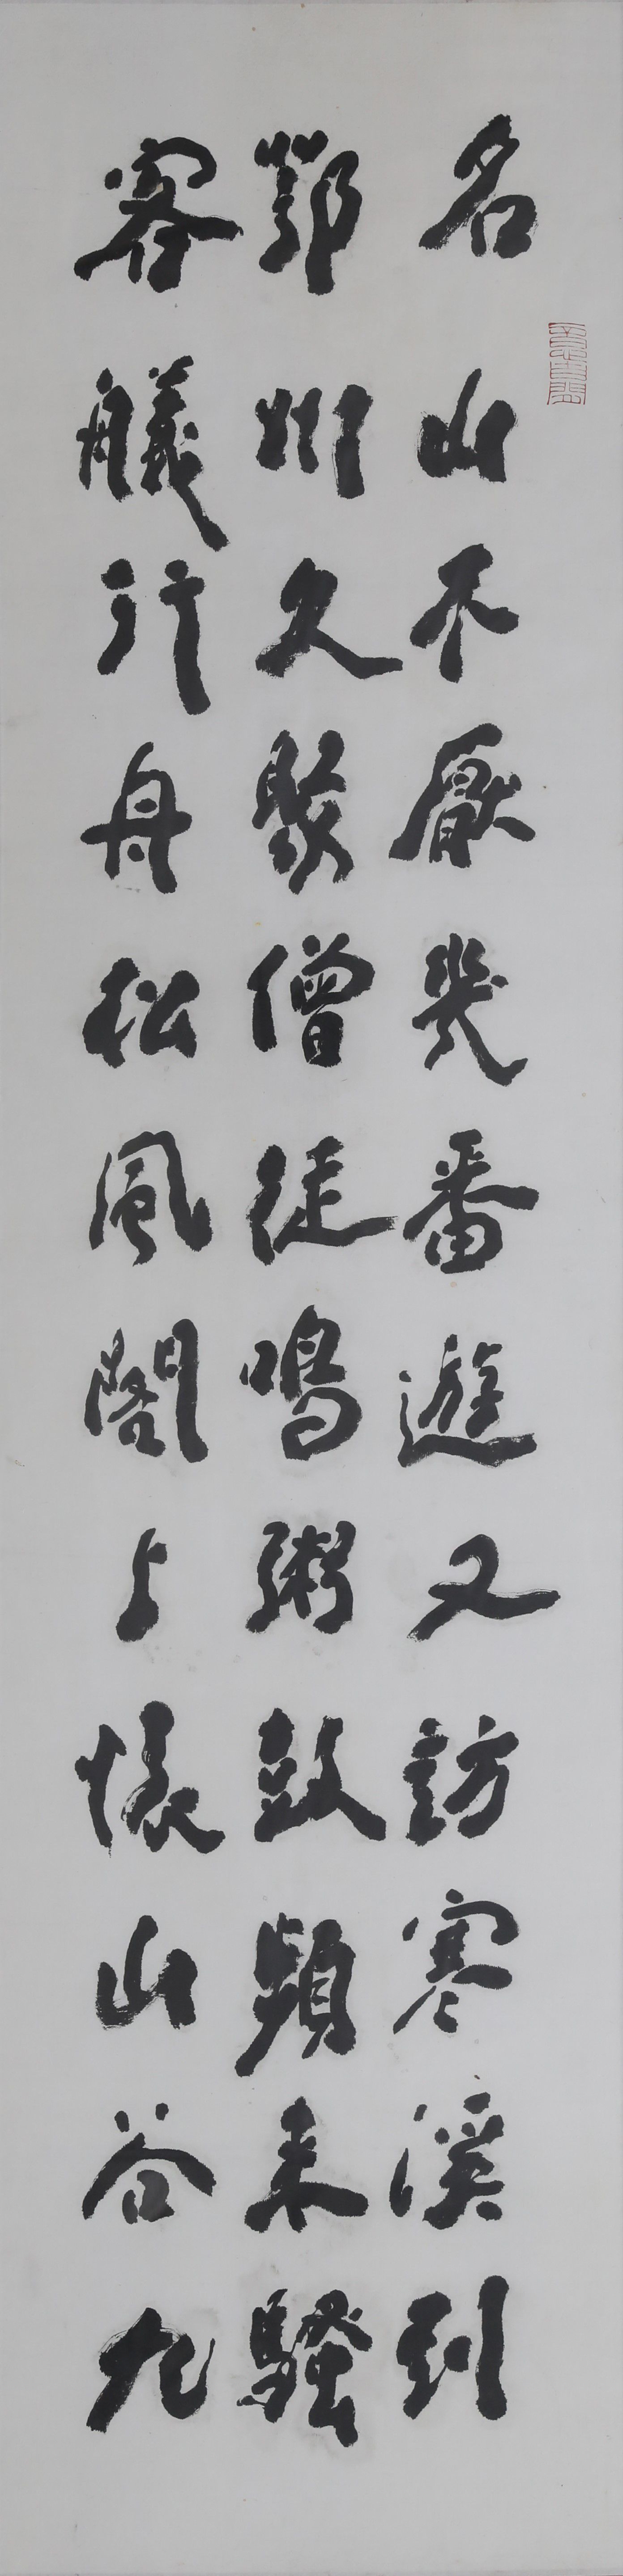 名山不厭幾番遊又訪寒溪到
鄂州久聚僧徒鳴粥鼓頻來騷
客艤行舟松風閣上懷山谷九